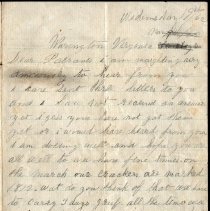 Wednesday
Warington Virginia
Dear Parents I am
to hear from you
I have sent three letters to you
and I have not received an answer
yet I gess you have not got them
yet or I would have heard from you
I am doeing well and hope you are
all well to we have fine times on
the march our cracker are marked
B.C. what do you think of that we have
to carry 3 days grub all the time and